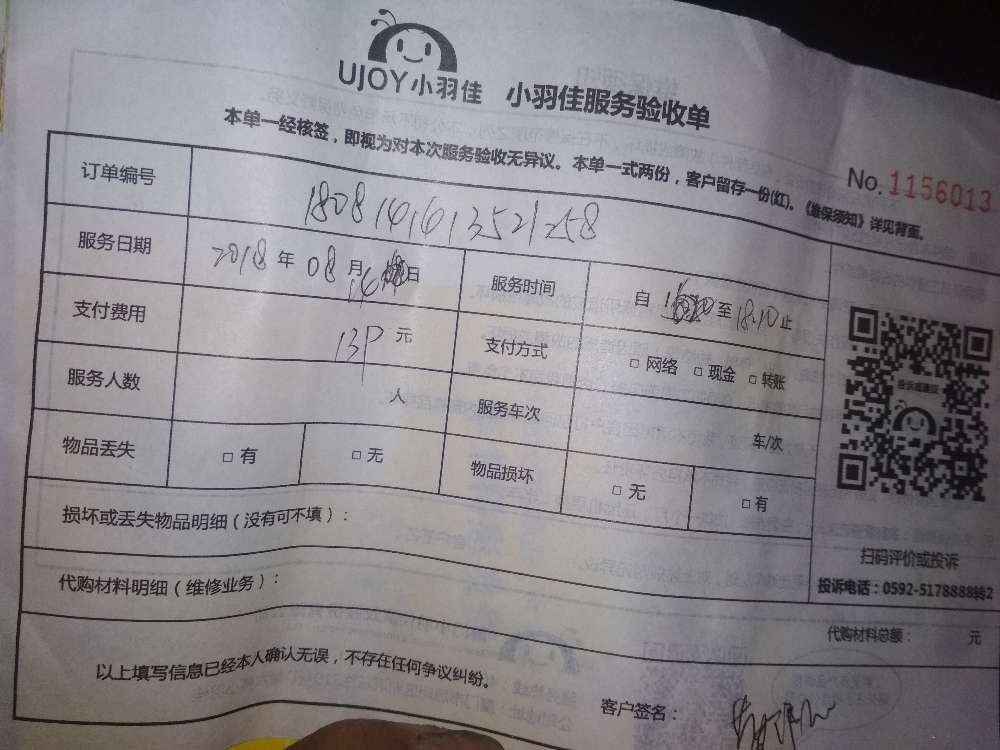 UJOY小羽佳 小羽佳服务验收单
本单一经核签，即视为对本次服务验收无异议。本单一式两份，客户留存一份(红)。《维保须知》详见背面。
No. 1156013
订单编号 180814161352158
服务日期 2018年08月14日 服务时间 自 至18:10止
支付费用 元 支付方式 □ 网络 □ 现金 □ 转账
服务人数 人 服务车次 车/次
物品丢失 □ 有 □ 无 物品损坏 □ 无 □ 有
损坏或丢失物品明细（没有可不填）：
扫码评价或投诉
投诉电话：0592-5178888转2
代购材料明细（维修业务）：
代购材料总额： 元
以上填写信息已经本人确认无误，不存在任何争议纠纷。
客户签名：